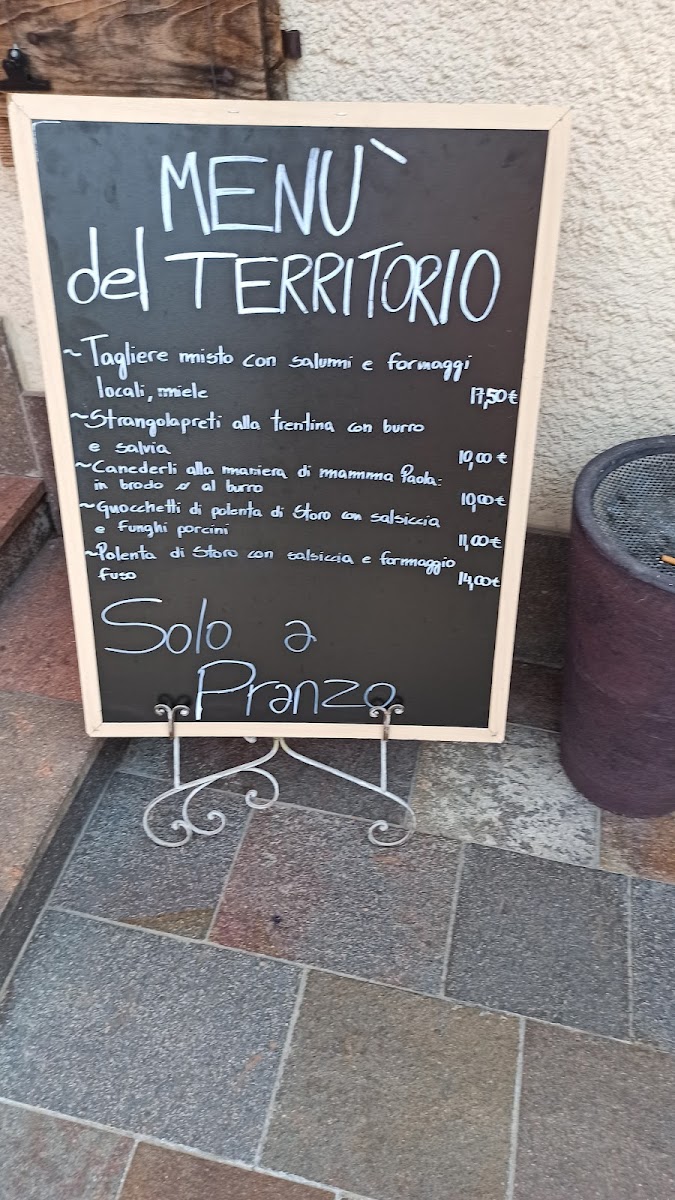 MENÙ
del TERRITORIO
~Tagliere misto con salumi e formaggi
locali, miele 17,50€
~Strangolapreti alla trentina con burro
e salvia 10,00€
~Canederli alla maniera di mamma Paola:
in brodo o al burro 10,00€
~Gnocchetti di polenta di Storo con salsiccia
e funghi porcini 11,00€
~Polenta di Storo con salsiccia e formaggio
fuso 14,00€
Solo a
Pranzo